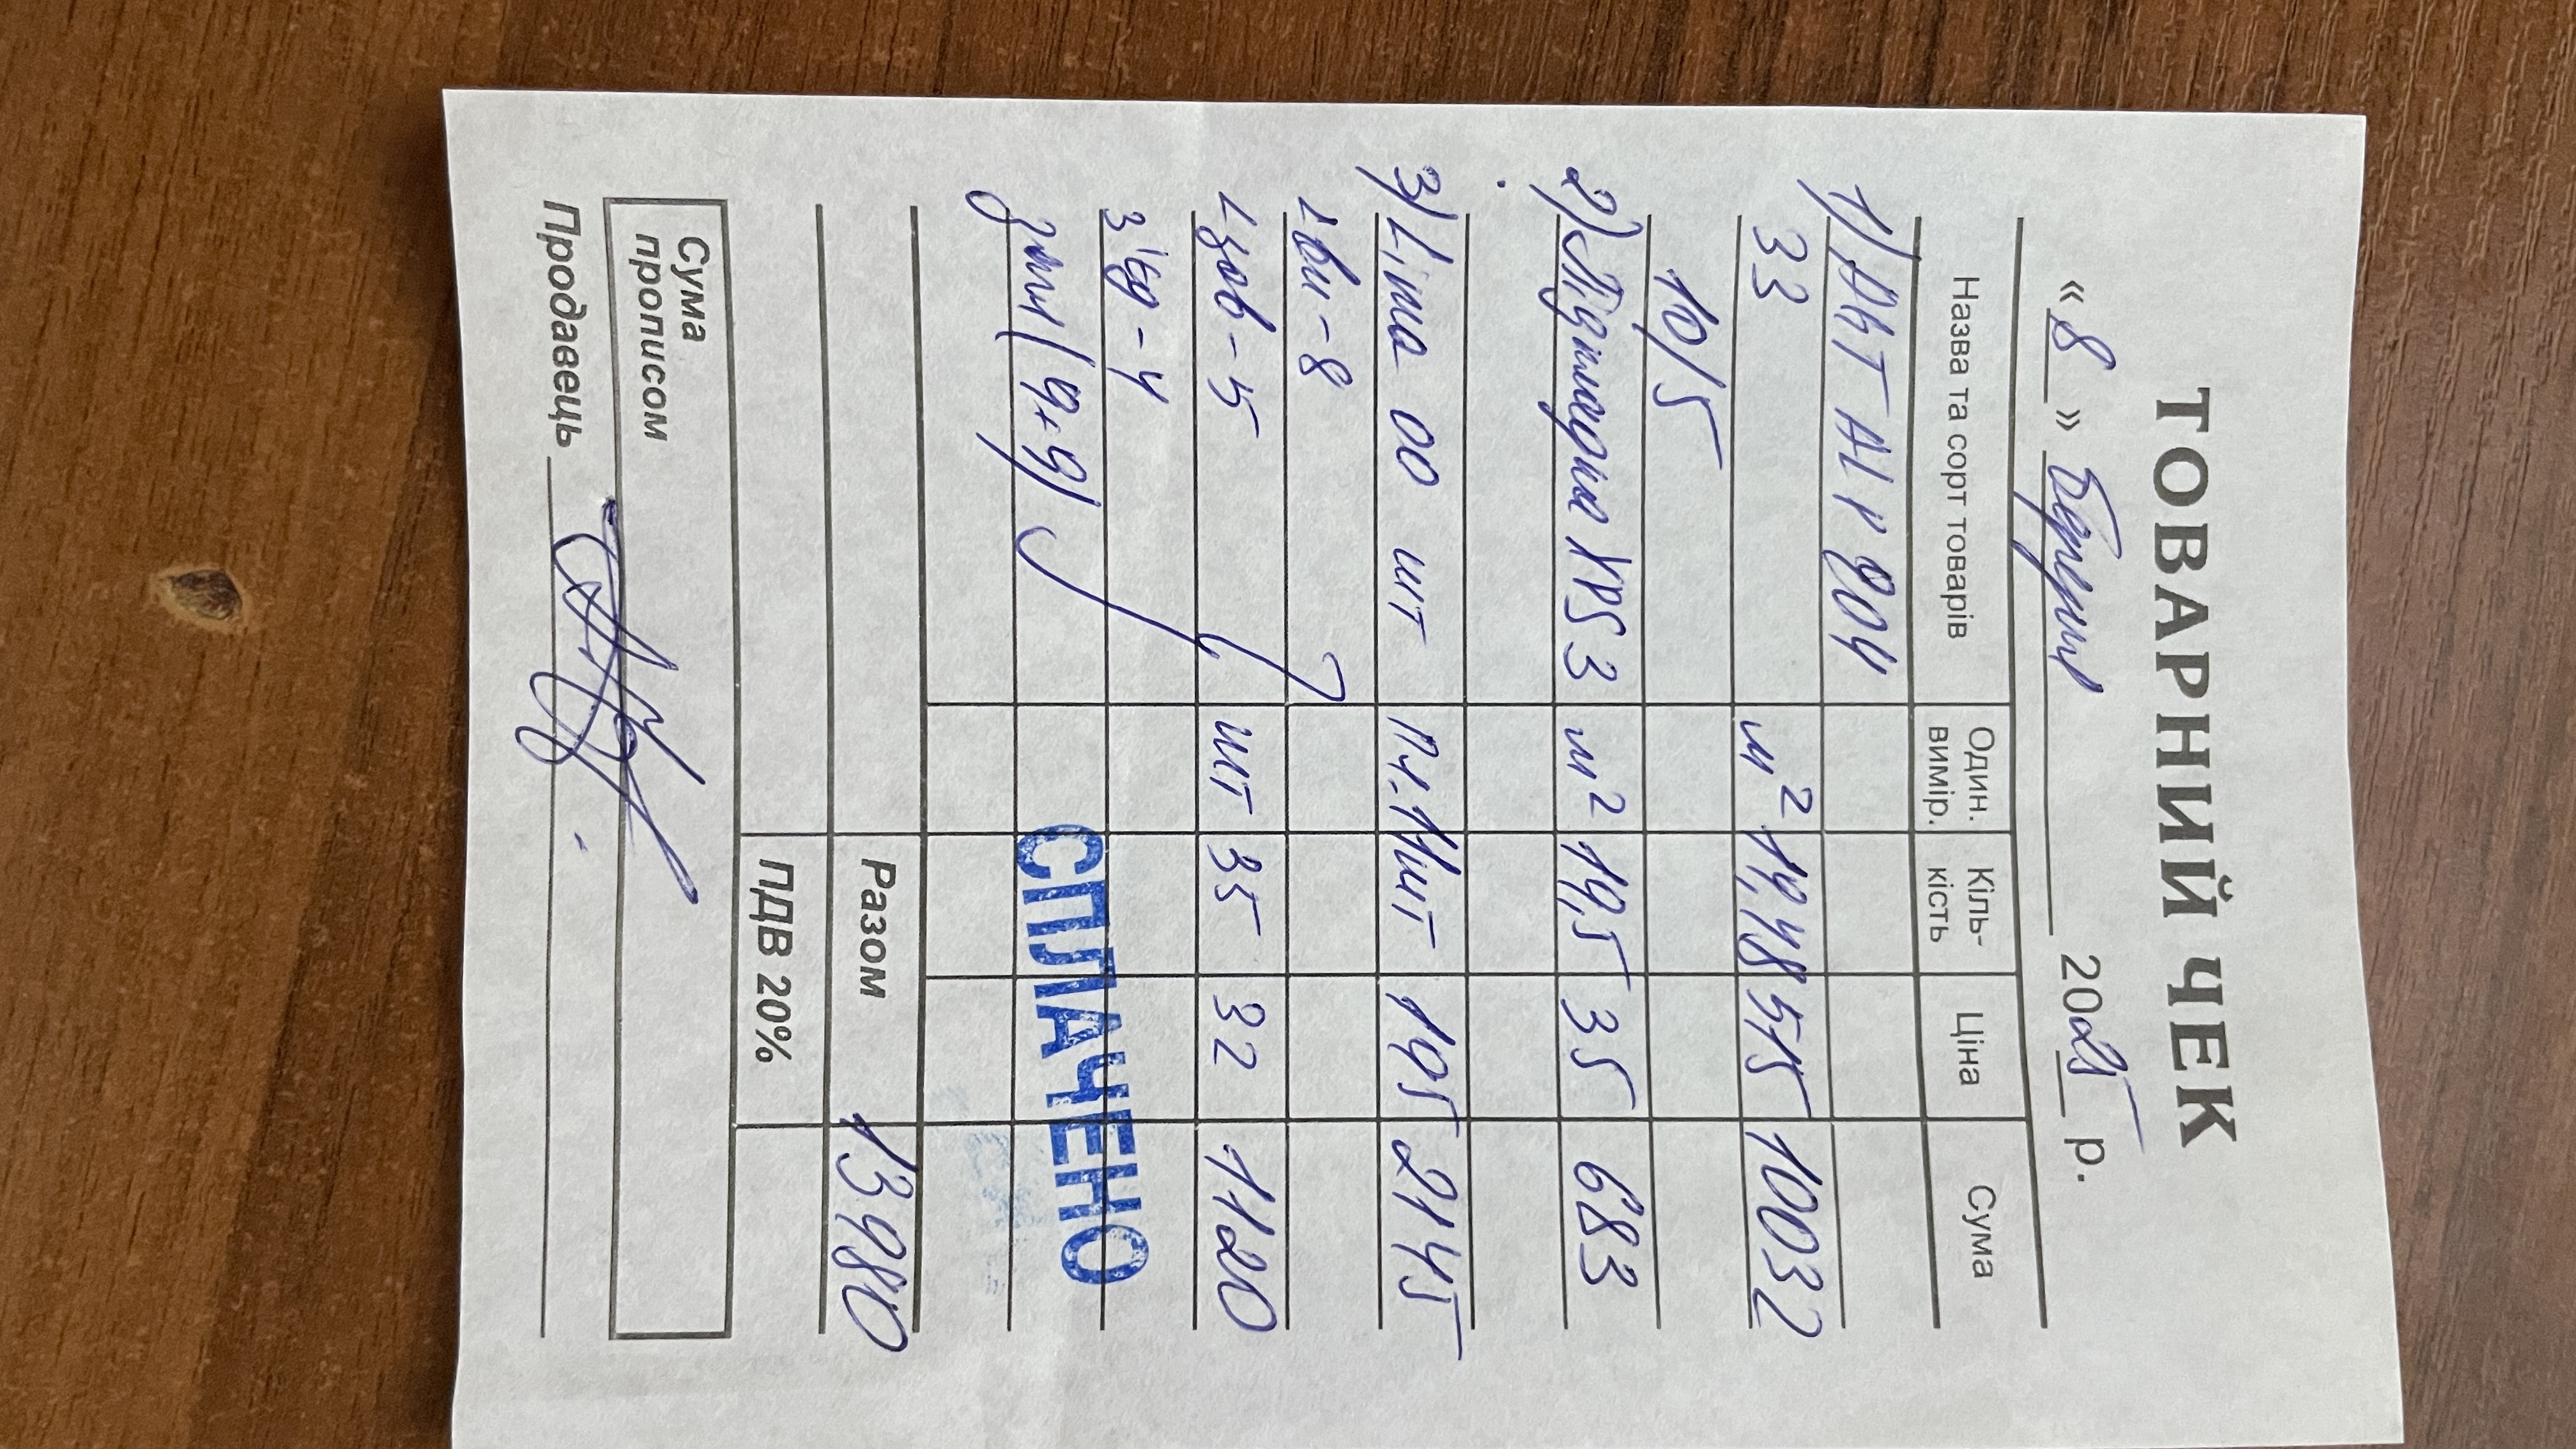 ТОВАРНИЙ ЧЕК
«8» березня 2025 р.
Назва та сорт товарів Один. вимір. Кіль-кість Ціна Сума
1) AGT ALP 904
33 м² 19,48 515 10032
10/5
2) Підкладка XPS 3 м² 19,5 35 683
3) Lima 00 шт пл. 11шт 195 2145
<вн-8
<зов-5 шт 35 32 1120
з'єд-4
загл (9+9)
СПЛАЧЕНО
Разом 13980
ПДВ 20%
Сума
прописом
Продавець